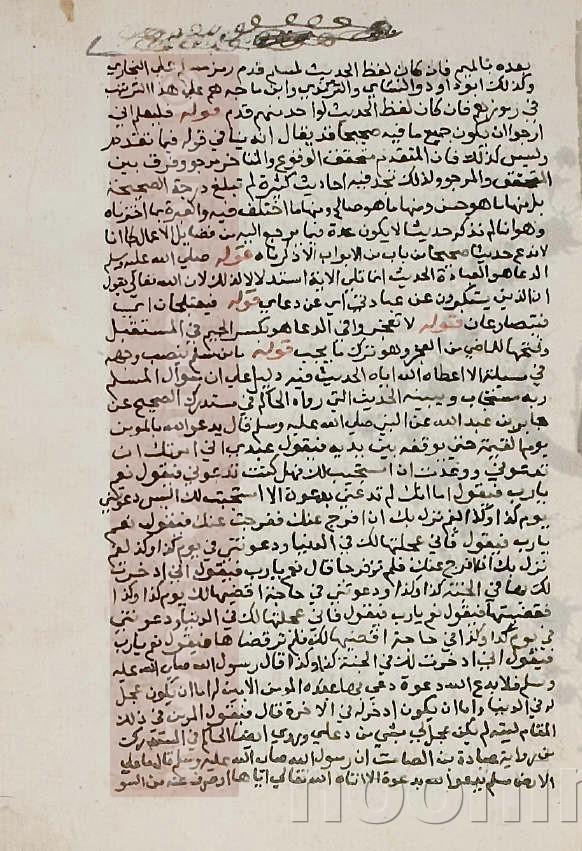 بعده بالميم فان كان لفظ الحديث لمسلم قدم رمز مسلم على البخاري
وكذلك ابو داود والنسائي والترمذي وابن ماجه هم على هذا الترتيب
في رموزهم فان كان لفظ الحديث لواحد منهم قدم قوله فلهذا اني
ارجو ان يكون جميع ما فيه صحيحا قد يقال اذ وينا في قوله فيما تقدم
وليس كذلك فان المتقدم متحقق الوقوع والمتاخر مرجو وفرق بين
المتحقق والمرجو ولذلك تجد فيه احاديث كثيرة لم تبلغ درجة الصحيحة
بل منها ما هو حسن ومنها ما هو صالح ومنها ما اختلف فيه والخيرة ما اخترناه
وهو انا لم نذكر حديثا لا يكون عمدة فيما يرجع اليه من فضايل الاعمال كما انا
لا ندع حديثا صحيحا من باب من الابواب الا ذكرناه قوله صلى الله عليه وسلم
الدعا هو العبادة الحديث انما تلى الاية استدلالا لذلك لان الله تعالى يقول
ان الذين يستكبرون عن عبادتي اي عن دعاي قوله فيعتلجان اي
يتصارعان قوله لا تعجزوا في الدعا هو بكسر الجيم في المستقبل
وفتحها للماضي من العجز وهو ترك ما يجب قوله ما من مسلم ينصب وجهه
في مسيلة الا اعطاه الله اياه الحديث فيه دليل على ان سوال المسلم
ربه مستجاب ويبينه الحديث التي رواه الحاكم في مستدرك الصحيح عن
جابر بن عبد الله عن النبي صلى الله عليه وسلم قال يدعو الله بالمومن
يوم القيمة حتى يوقفه بين يديه فيقول عبدي اني امرتك ان
تدعوني ووعدتك ان استجيب لك فهل كنت تدعوني فيقول نعم
يا رب فيقول اما انك لم تدعني بدعوة الا استجبت لك اليس دعوتني
يوم كذا وكذا لغم نزل بك ان افرج عنك ففرجت عنك فيقول نعم
يا رب فيقول فاني عجلتها لك في الدنيا ودعوتني في يوم كذا وكذا لغم
نزل بك ان افرج عنك فلم تر فرجا قال نعم يا رب فيقول اني ادخرت
لك بها في الجنة كذا وكذا ودعوتني في حاجة اقضيها لك يوم كذا وكذا
فقضيتها فيقول نعم يا رب فيقول فاني عجلتها لك في الدنيا ودعوتني
في يوم كذا وكذا في حاجة اقضيها لك فلم تر قضاها فيقول نعم يا رب
فيقول اني ادخرت لك في الجنة كذا وكذا قال رسول الله صلى الله عليه
وسلم فلا يدع الله دعوة دعى بها عبده المومن الا بين له اما ان يكون عجل
له في الدنيا واما ان يكون ادخر له في الاخرة قال فيقول المومن في ذلك
المقام ليته لم يكن عجل له شي من دعايه وروى ايضا الحاكم في المستدرك
من رواية عبادة بن الصامت ان رسول الله صلى الله عليه وسلم قال ما على
الارض مسلم يدعو الله بدعوة الا اتاه الله تعالى اياها او صرف عنه من السو